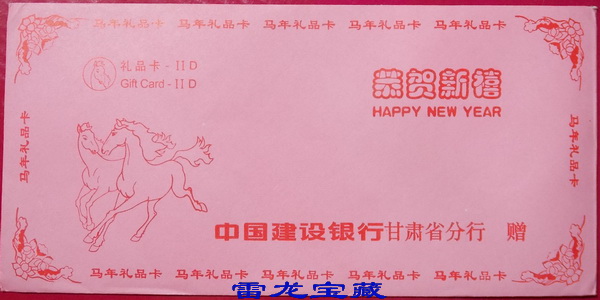 马年礼品卡 马年礼品卡 马年礼品卡 马年礼品卡 马年礼品卡
礼品卡 - II D
Gift Card - II D
恭贺新禧
HAPPY NEW YEAR
马年礼品卡
马年礼品卡
中国建设银行甘肃省分行 赠
马年礼品卡 马年礼品卡 马年礼品卡 马年礼品卡 马年礼品卡
雷龙宝藏